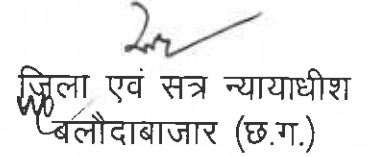 जिला एवं सत्र न्यायाधीश
बलौदाबाजार (छ.ग.)